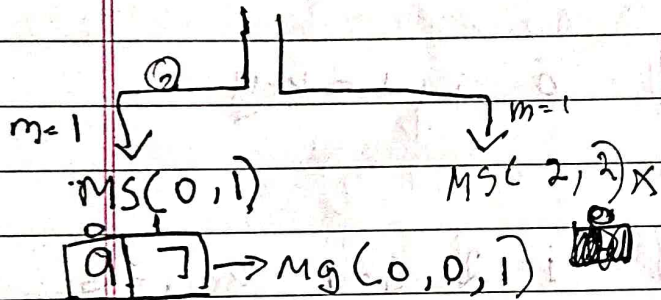 ②
m=1 m=1
MS(0,1) MS(2,2) x
0 1
9 7 → Mg(0,0,1)